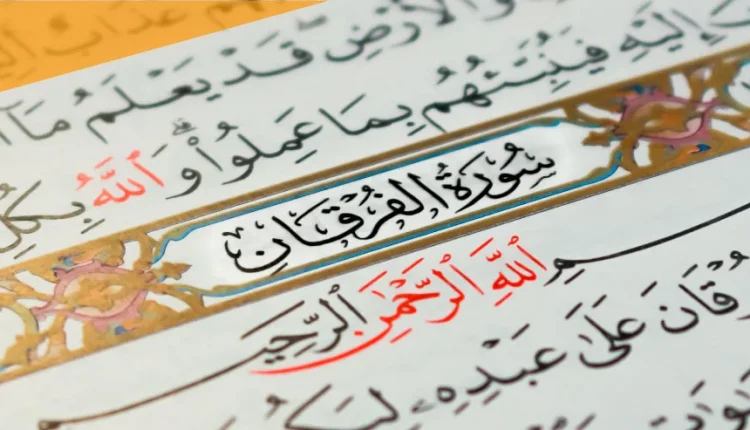 عَذَابٌ
وَالْأَرْضِ قَدْ يَعْلَمُ مَآ
إِلَيْهِ فَيُنَبِّئُهُم بِمَا عَمِلُوا۟ ۗ وَٱللَّهُ بِكُلِّ
سُورَةُ الفُرْقَانِ
ـسْمِ ٱللَّهِ ٱلرَّحْمَٰنِ ٱلرَّحِيمِ
ـرْقَانَ عَلَىٰ عَبْدِهِۦ لِيَكُو